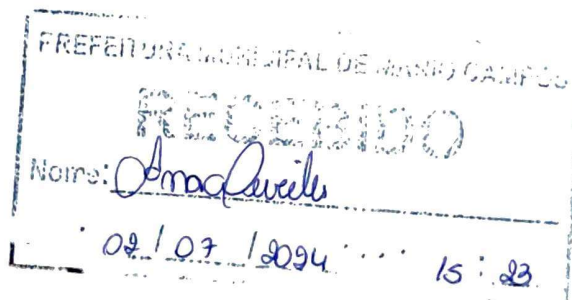 PREFEITURA MUNICIPAL DE MÁRIO CAMPOS
RECEBIDO
Nome: Ana
02/07/2024 15:23